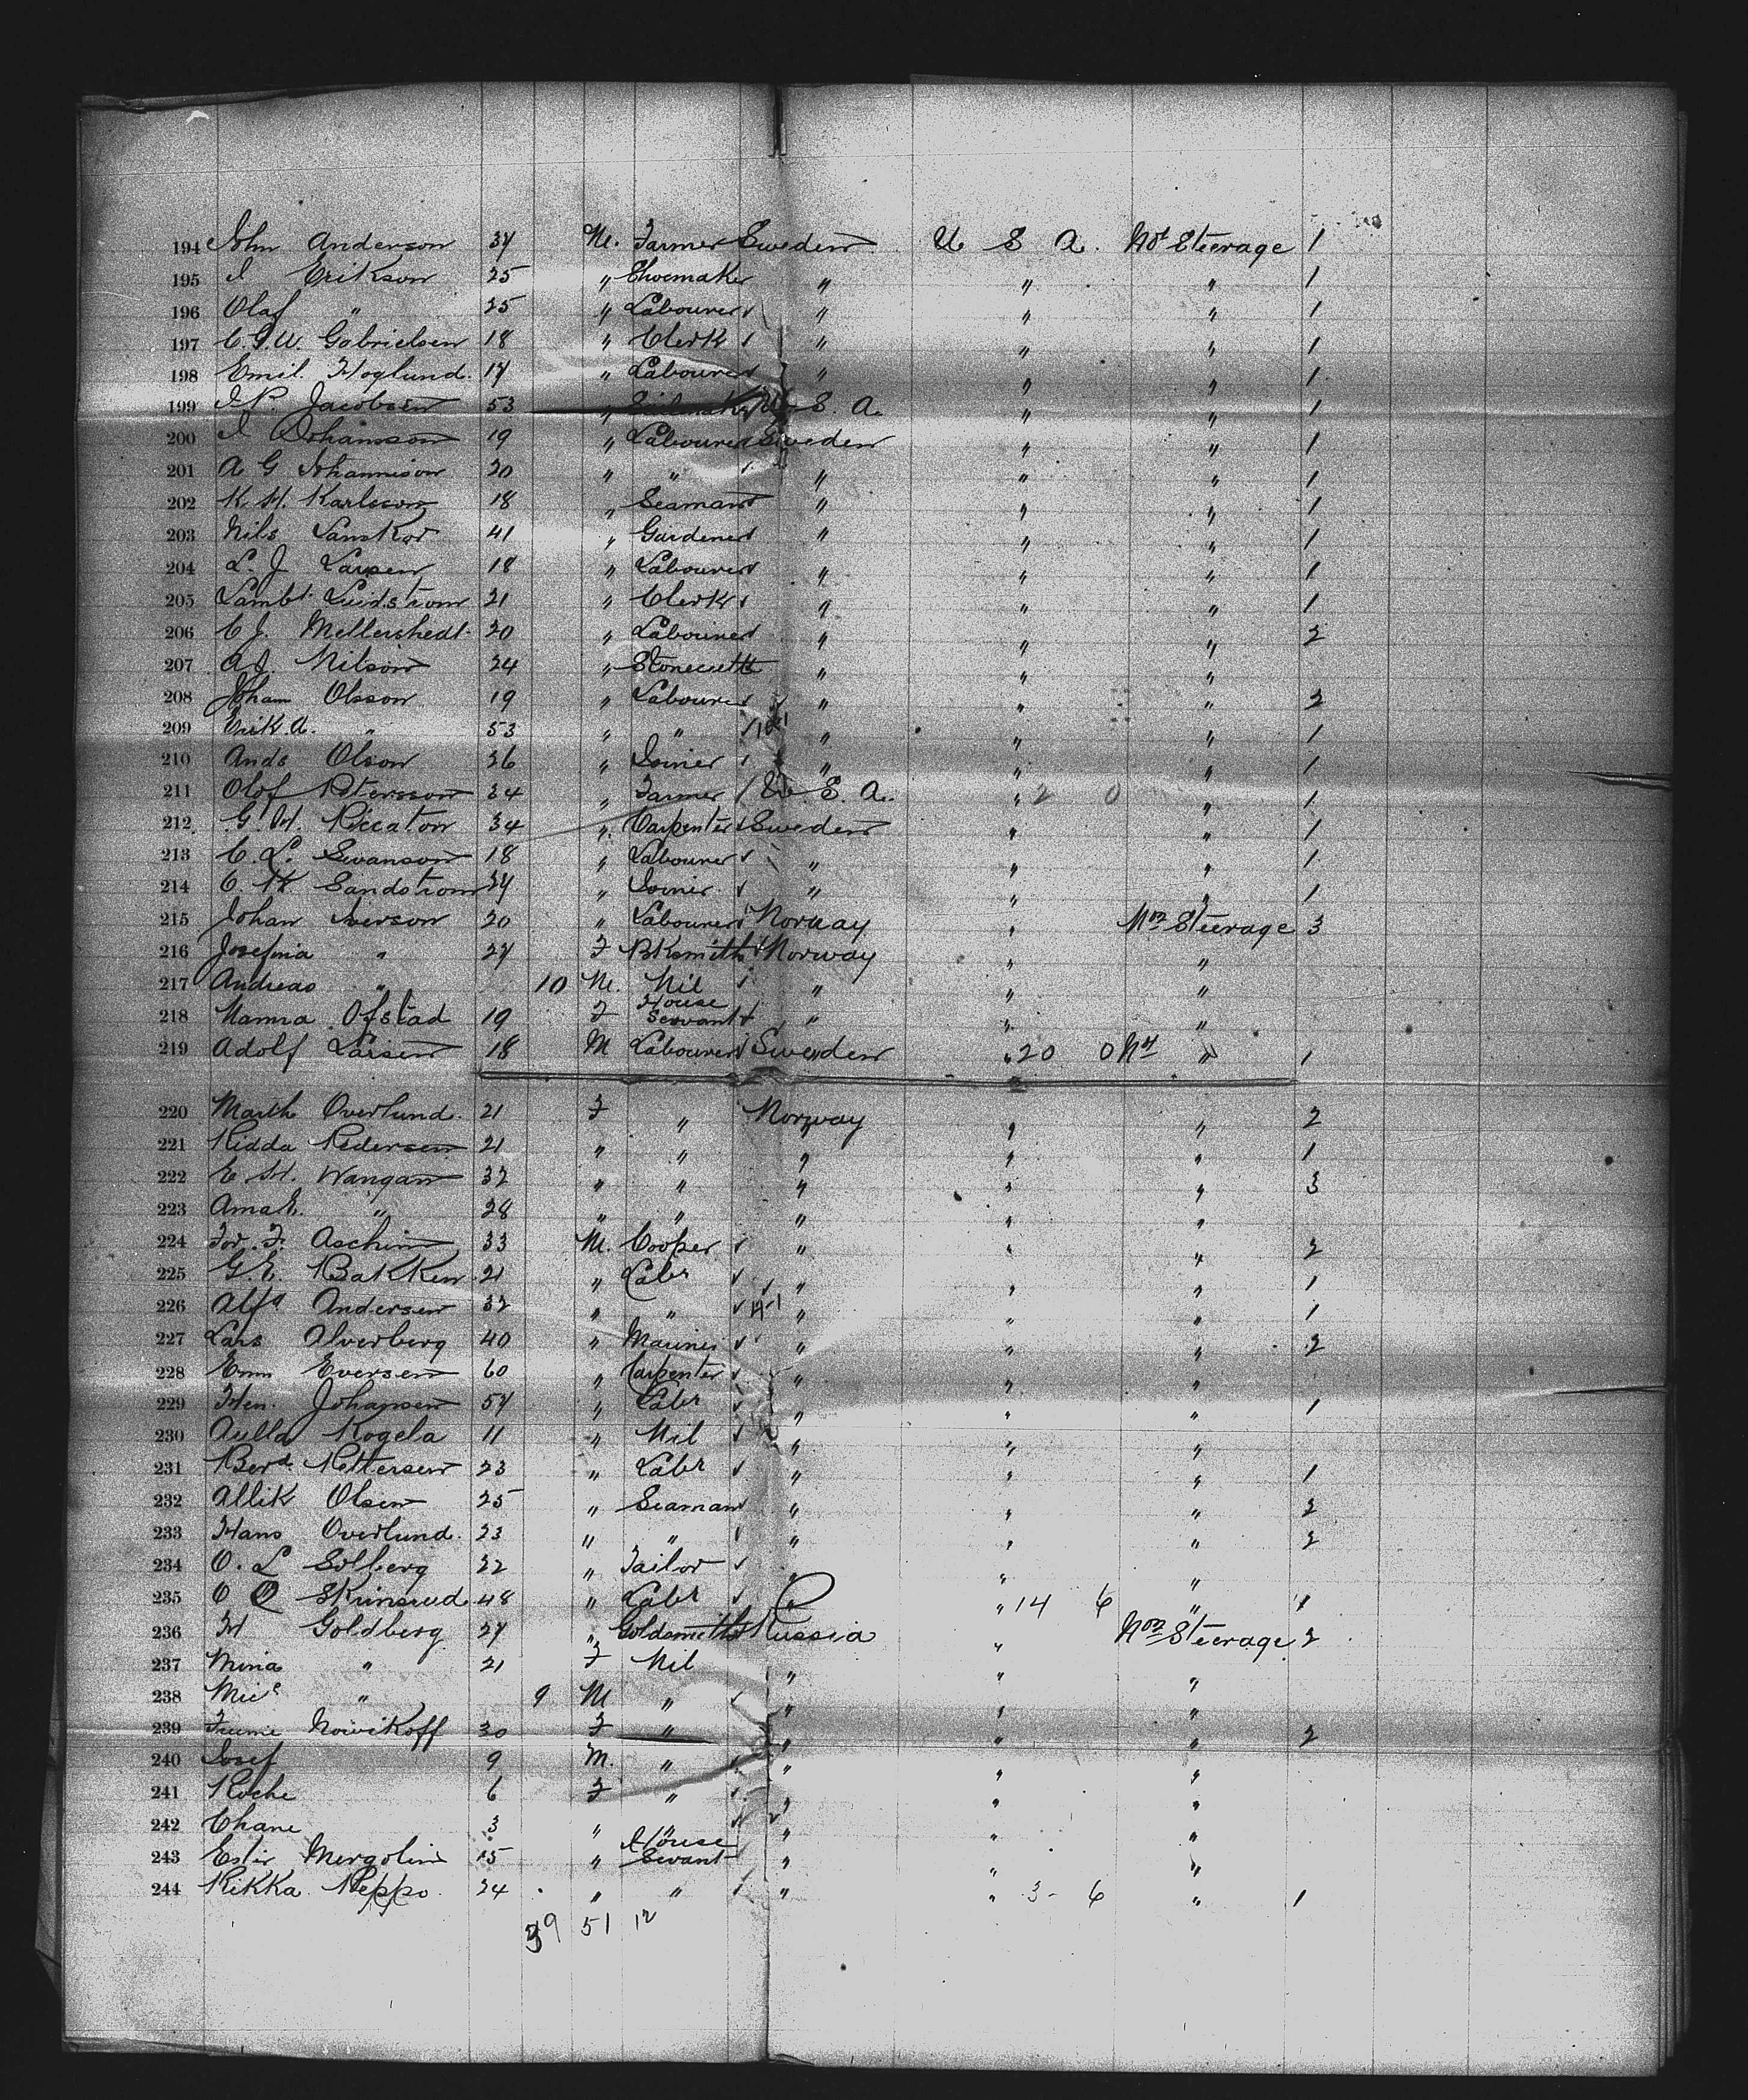 194 John Anderson 34 M. Farmer Sweden U S A. No 1 Steerage 1
195 I Erikson 25 " Shoemaker " " " 1
196 Olaf " 25 " Labourer " " " 1
197 C.G.W. Gabrielsen 18 " Clerk " " " 1
198 Emil Hoglund 17 " Labourer " " " 1
199 Jacobsen 53 " U. S. A. " " 1
200 I Johansson 19 " Labourer Sweden " " 1
201 A G Johannison 20 " " " " " 1
202 K. H. Karlsson 18 " Seaman " " " 1
203 Nils 41 " Gardener " " " 1
204 L. J. Larsen 18 " Labourer " " " 1
205 Lambt. Lindstrom 21 " Clerk " " " 1
206 C J. Mellershedt 20 " Labourer " " " 2
207 A J. Nilson 24 " Stonecutter " " "
208 Johan Olsson 19 " Labourer " " " 2
209 Erik A. " 53 " " " " " 1
210 Ands Olson 26 " Joiner " " " 1
211 Olof Petersson 34 " Farmer U. S. A. " 2 0 " 1
212 G. H. 34 " Carpenter Sweden " " 1
213 C. L. Swanson 18 " Labourer " " " 1
214 Sandstrom 24 " Joiner " " " 1
215 Johan Iverson 20 " Labourer Norway " No 2 Steerage 3
216 Josefina " 24 F Bksmith Norway " "
217 Andreas " 10 M. Nil " " "
218 Manna Ofstad 19 F House Servant " " "
219 Adolf Larsen 18 M Labourer Sweden " 20 0 No 1 " 1
220 Marth Overlund 21 F " Norway " " 2
221 Pedersen 21 " " " " " 1
222 E. H. Wangan 32 " " " " " 3
223 Ama E. " 28 " " " " "
224 Tor. F. Aschim 33 M. Cooper " " " 2
225 G. E. Bakken 21 " Labr " " " 1
226 Alfd Andersen 32 " " " " " 1
227 Lars Alverberg 40 " Mariner " " " 2
228 Enn Eversen 60 " Carpenter " " "
229 Hen. Johansen 54 " Labr " " " 1
230 Aulla Kogela 11 " Nil " " "
231 Berd. Pettersen 23 " Labr " " " 1
232 Allik Olsen 25 " Seaman " " " 2
233 Hans Overlund 23 " " " " " 2
234 O. L Solberg 22 " Tailor " " "
235 O O Skinsrud 48 " Labr " " 14 6 " 1
236 H Goldberg 27 " Goldsmith Russia " No 2 Steerage 2
237 Mina " 21 F Nil " " "
238 " 9 M " " " "
239 Nowikoff 30 F " " " " 2
240 Josef 9 M. " " " "
241 6 F " " " "
242 Chane 3 " " " " "
243 Ester Mergolin 15 " House Servant " " "
244 Peppo 24 " " " " 3 - 6 " 1
39 51 12